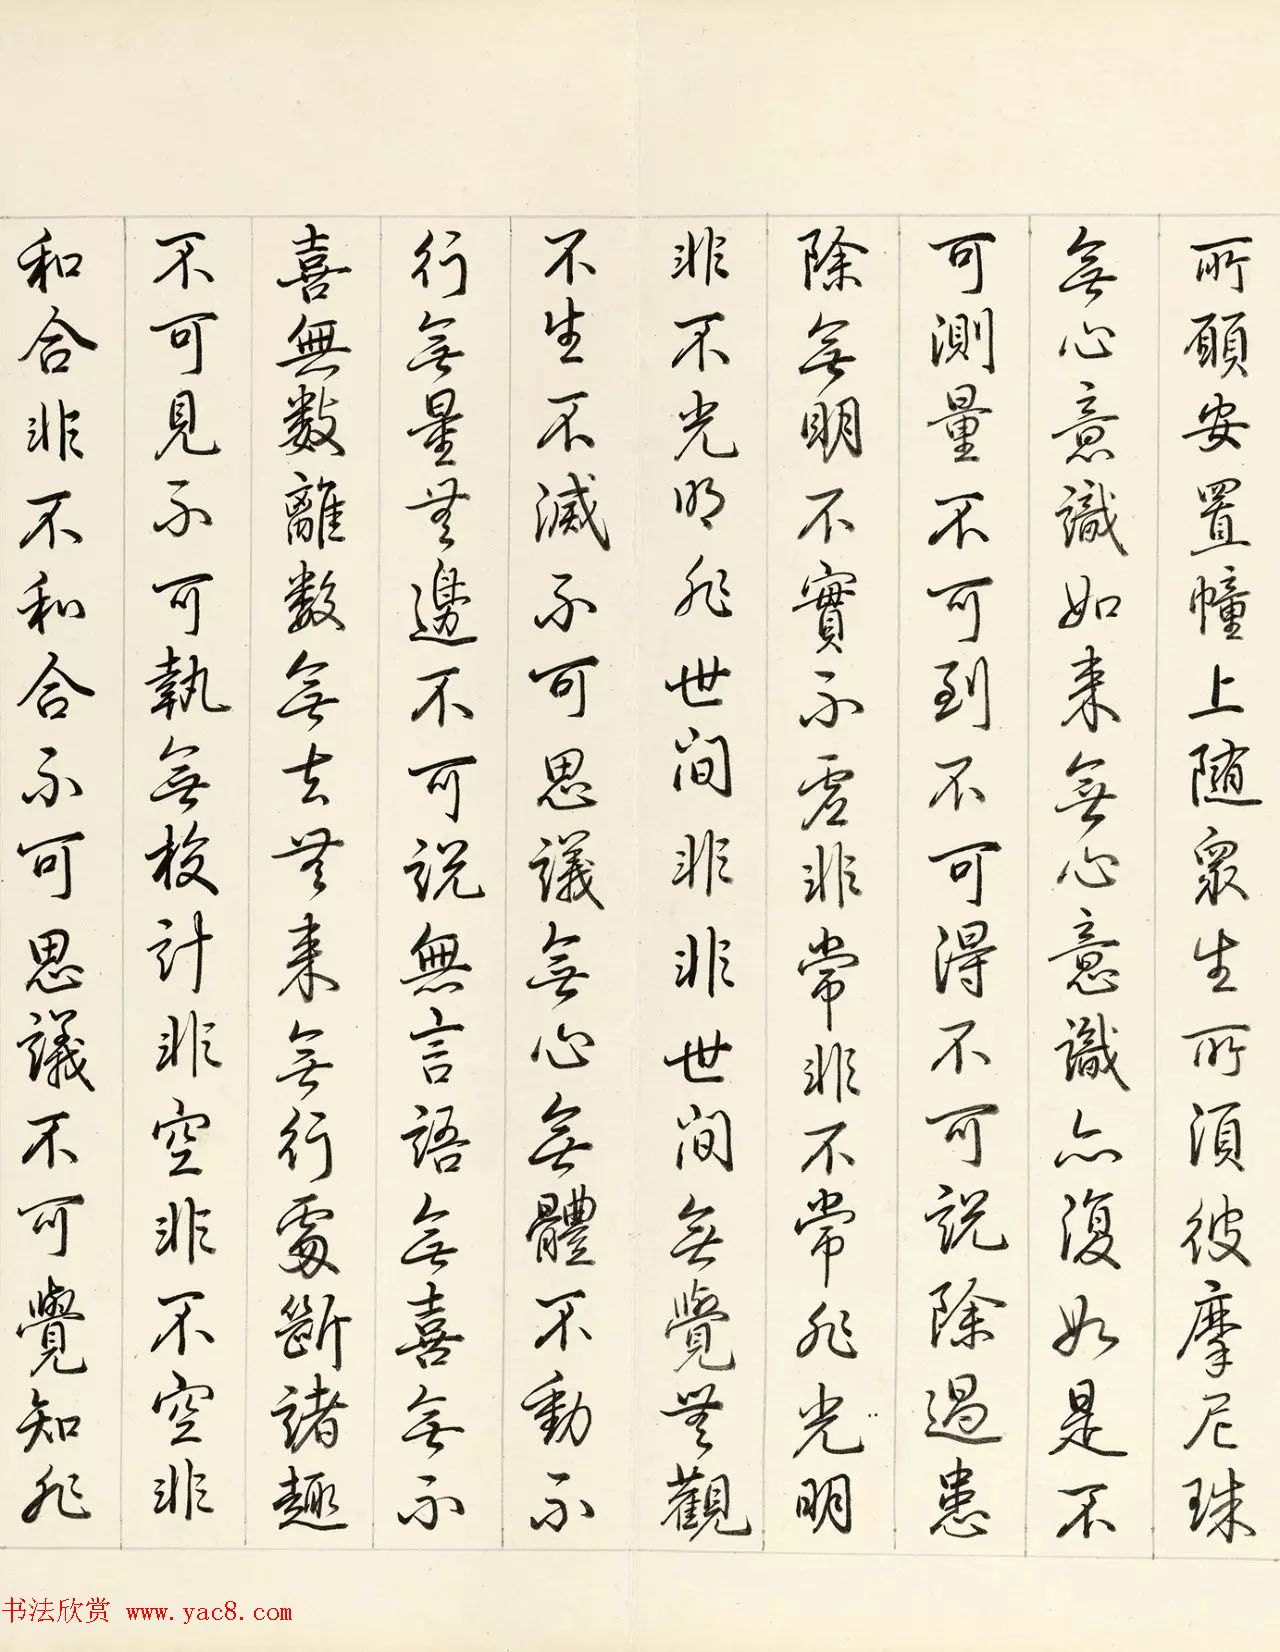 所願安置幢上随衆生所須彼摩尼珠
無心意識如来無心意識亦復如是不
可測量不可到不可得不可説除過患
除無明不實不虚非常非不常非光明
非不光明非世間非非世間無覺無觀
不生不滅不可思議無心無體不動不
行無量無邊不可説無言語無喜無不
喜無數離數無去無来無行無行處斷諸趣
不可見不可執無校計非空非不空非
和合非不和合不可思議不可覺知非
书法欣赏 www.yac8.com